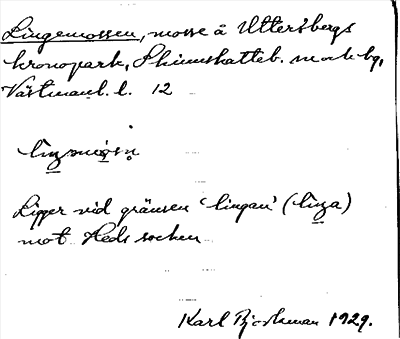 Lingemossen, mosse å Uttersbergs
kronopark, Skinnskatteb. sn o bg,
Västmanl. l. 12
Ligger vid gränsen 'lingan' (
mot Heds socken
Karl Björkman 1929.